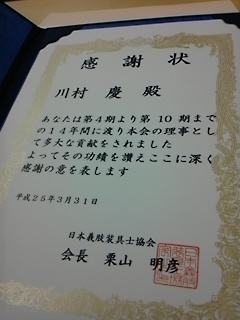 感謝状
川村 慶 殿
あなたは第4期より第10期まで
の14年間に渡り本会の理事とし
て多大な貢献をされました
よってその功績を讃えここに深く
感謝の意を表します
平成25年3月31日
日本義肢装具士協会
会長 栗山 明彦